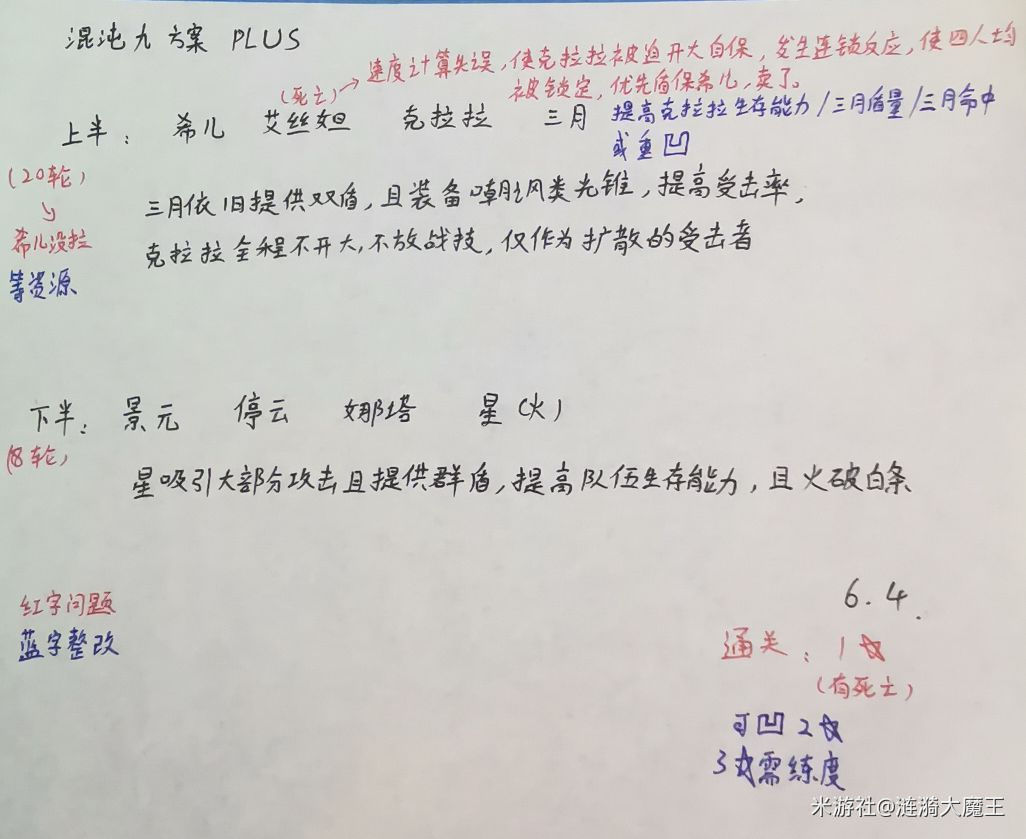 混沌九方案 PLUS
(死亡)→速度计算失误,使克拉拉被迫开大自保,发生连锁反应,使四人均
被锁定,优先盾保希儿,卖了。
上半: 希儿 艾丝妲 克拉拉 三月 提高克拉拉生存能力/三月盾量/三月命中
或重凹
(20轮)
三月依旧提供双盾,且装备嘲讽类光锥,提高受击率,
希儿没拉
克拉拉全程不开大,不放战技,仅作为扩散的受击者
等资源
下半: 景元 停云 娜塔 星(火)
(8轮)
星吸引大部分攻击且提供群盾,提高队伍生存能力,且火破白条
红字问题
蓝字整改
6.4.
通关:1☆
(有死亡)
可凹2☆
3☆需练度
米游社@涟漪大魔王